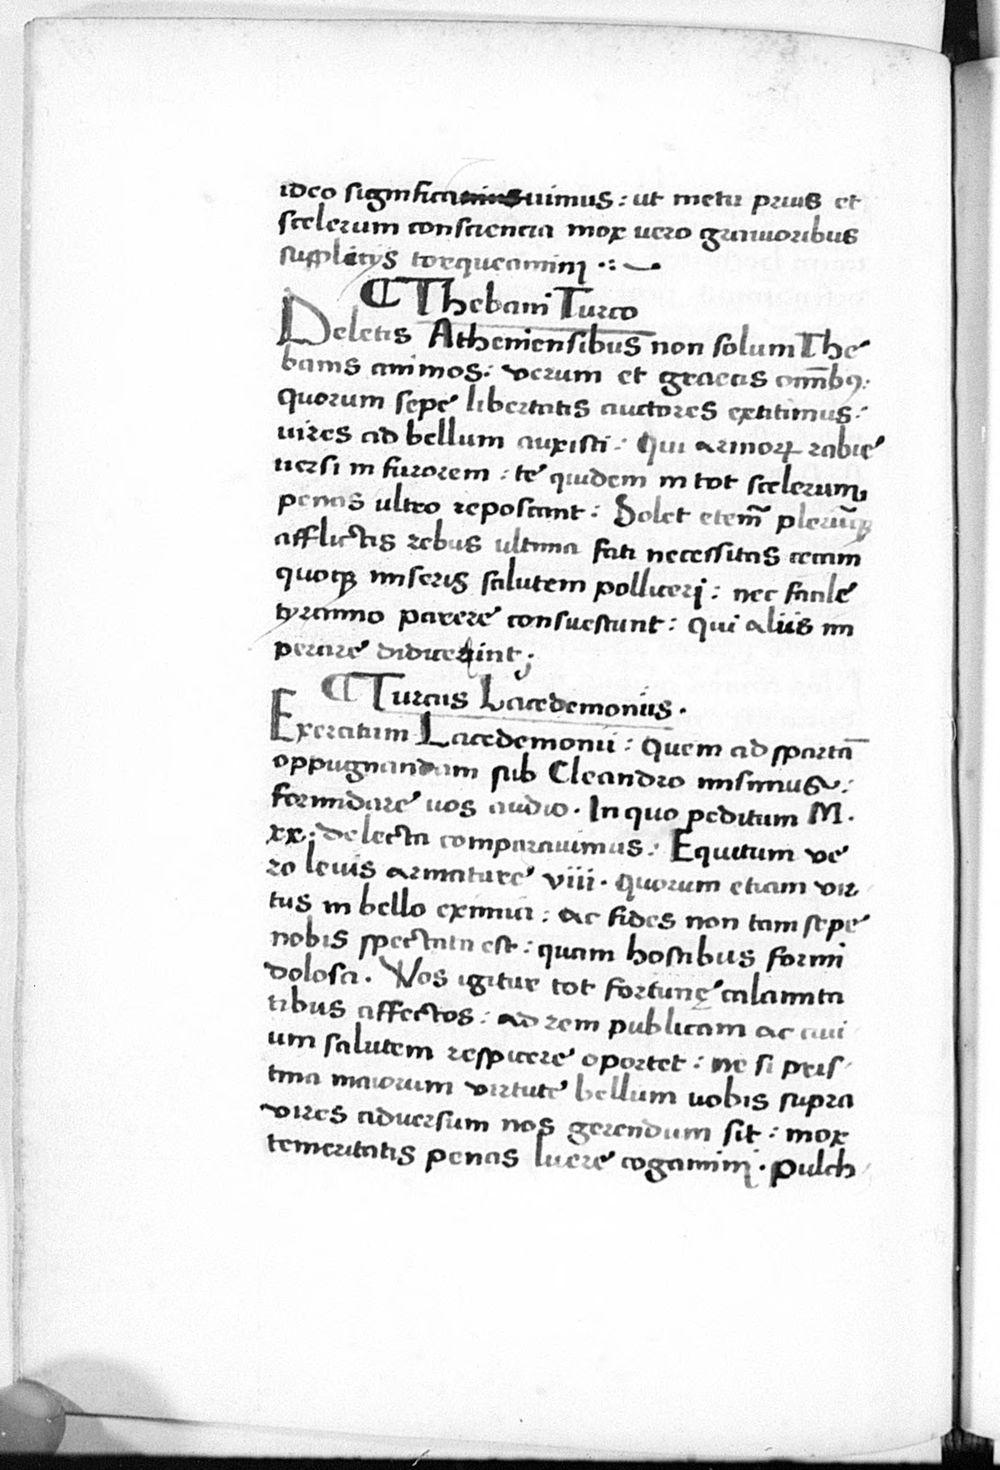 ideo significauimus: ut metu prius et
scelerum consciencia mox uero grauioribus
supplicijs torqueamini
Thebani Turco
Deletis Atheniensibus non solum The
banis animos: verum et graecis om̄ibꝫ:
quorum sepe libertatis auctores extitimus:
uires ad bellum auxisti: Qui armoꝝ rabie
uersi in furorem: te quidem in tot scelerum
penas ultro reposcant: Solet etem̄ pleriūqꝫ
afflictis rebus ultima fati necessitas certam
quoqꝫ miseris salutem polliceri: nec facile
tyranno parere consuescunt: qui aliis im
perare didicerint;
Turcus Lacedemoniis.
Exercitum Lacedemonii: quem ad spartā
oppugnandam sub Cleandro misimus:
formidare uos audio. In quo peditum M.
xx. delecta comparauimus: Equitum ve
ro leuis armature viii. quorum etiam vir
tus in bello eximia: ac fides non tam sepe
nobis spectata est: quam hostibus formi
dolosa. Vos igitur tot fortunę calamita
tibus affectos: ad rem publicam ac ciui
um salutem respicere oportet: ne si pris
tina maiorum virtute bellum uobis supra
vires aduersum nos gerendum sit: mox
temeritatis penas luere cogamini. pulch